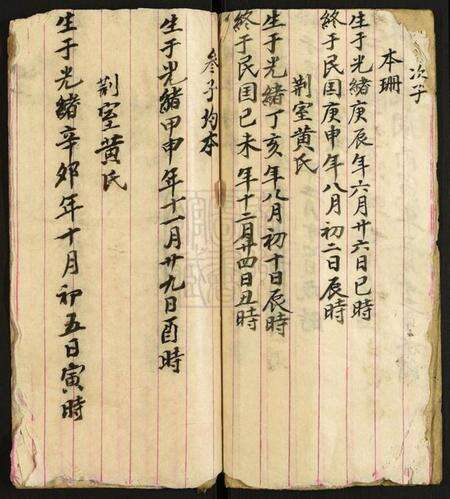 次子
本珊
生于光緒庚辰年六月廿六日巳時
终于民囯庚申年八月初二日辰時
荆室黄氏
生于光緒丁亥年八月初十日辰時
終于民囯己未年十二月廿四日丑時
叁子均本
生于光緒甲申年十一月廿九日酉時
荆室黄氏
生于光緒辛卯年十月初五日寅時